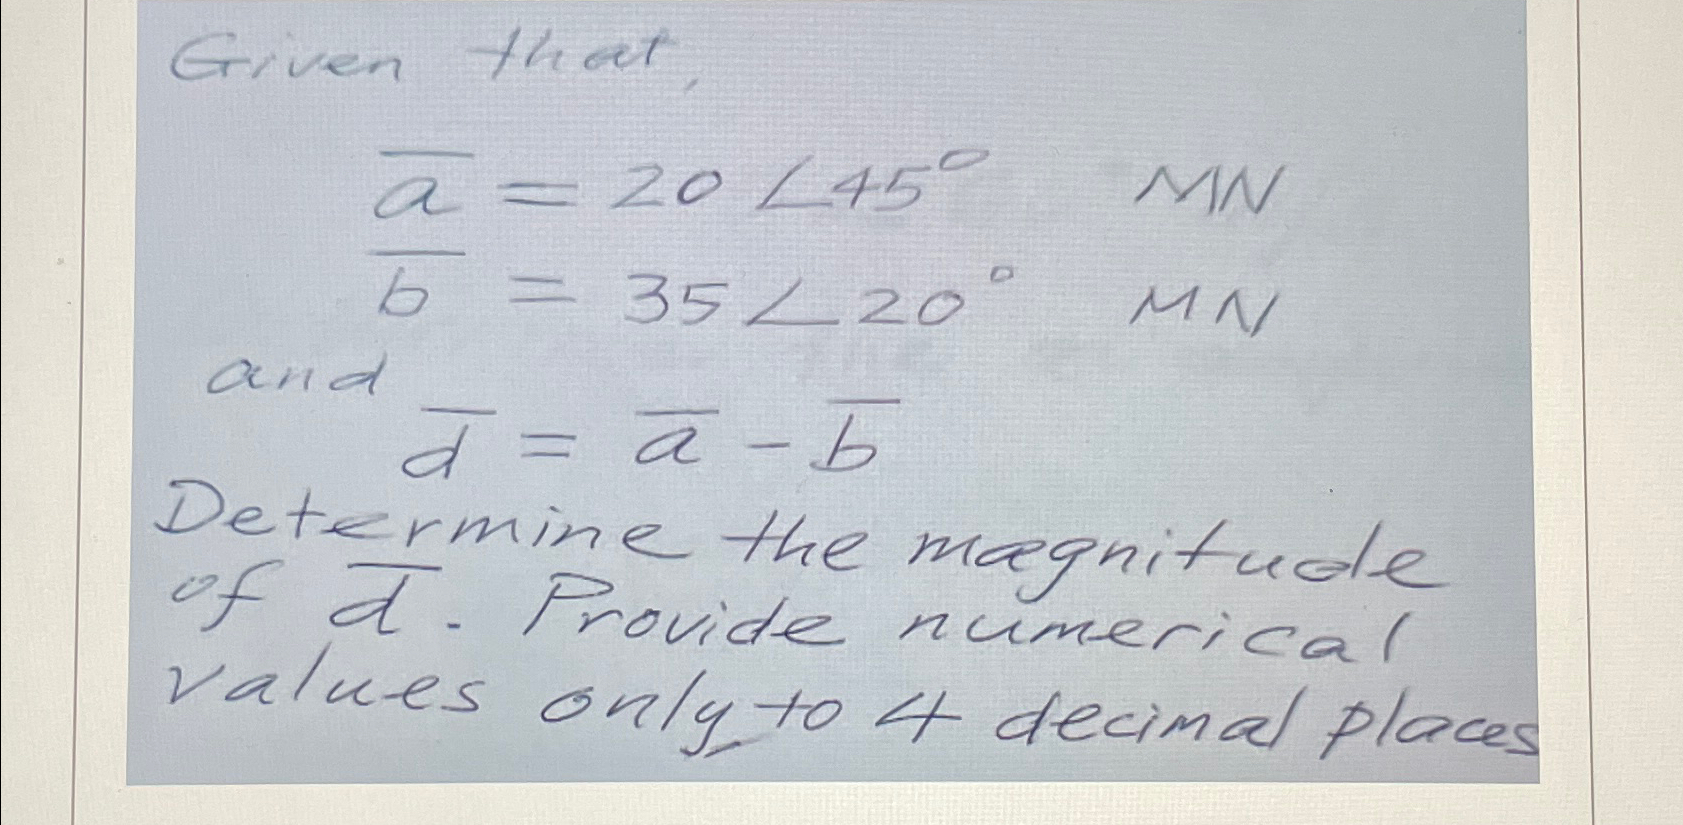 Given that,
a̅ = 20 ∠45° MN
b̅ = 35∠20° MN
and
d̅ = a̅ - b̅
Determine the magnitude
of d̅. Provide numerical
values only to 4 decimal places